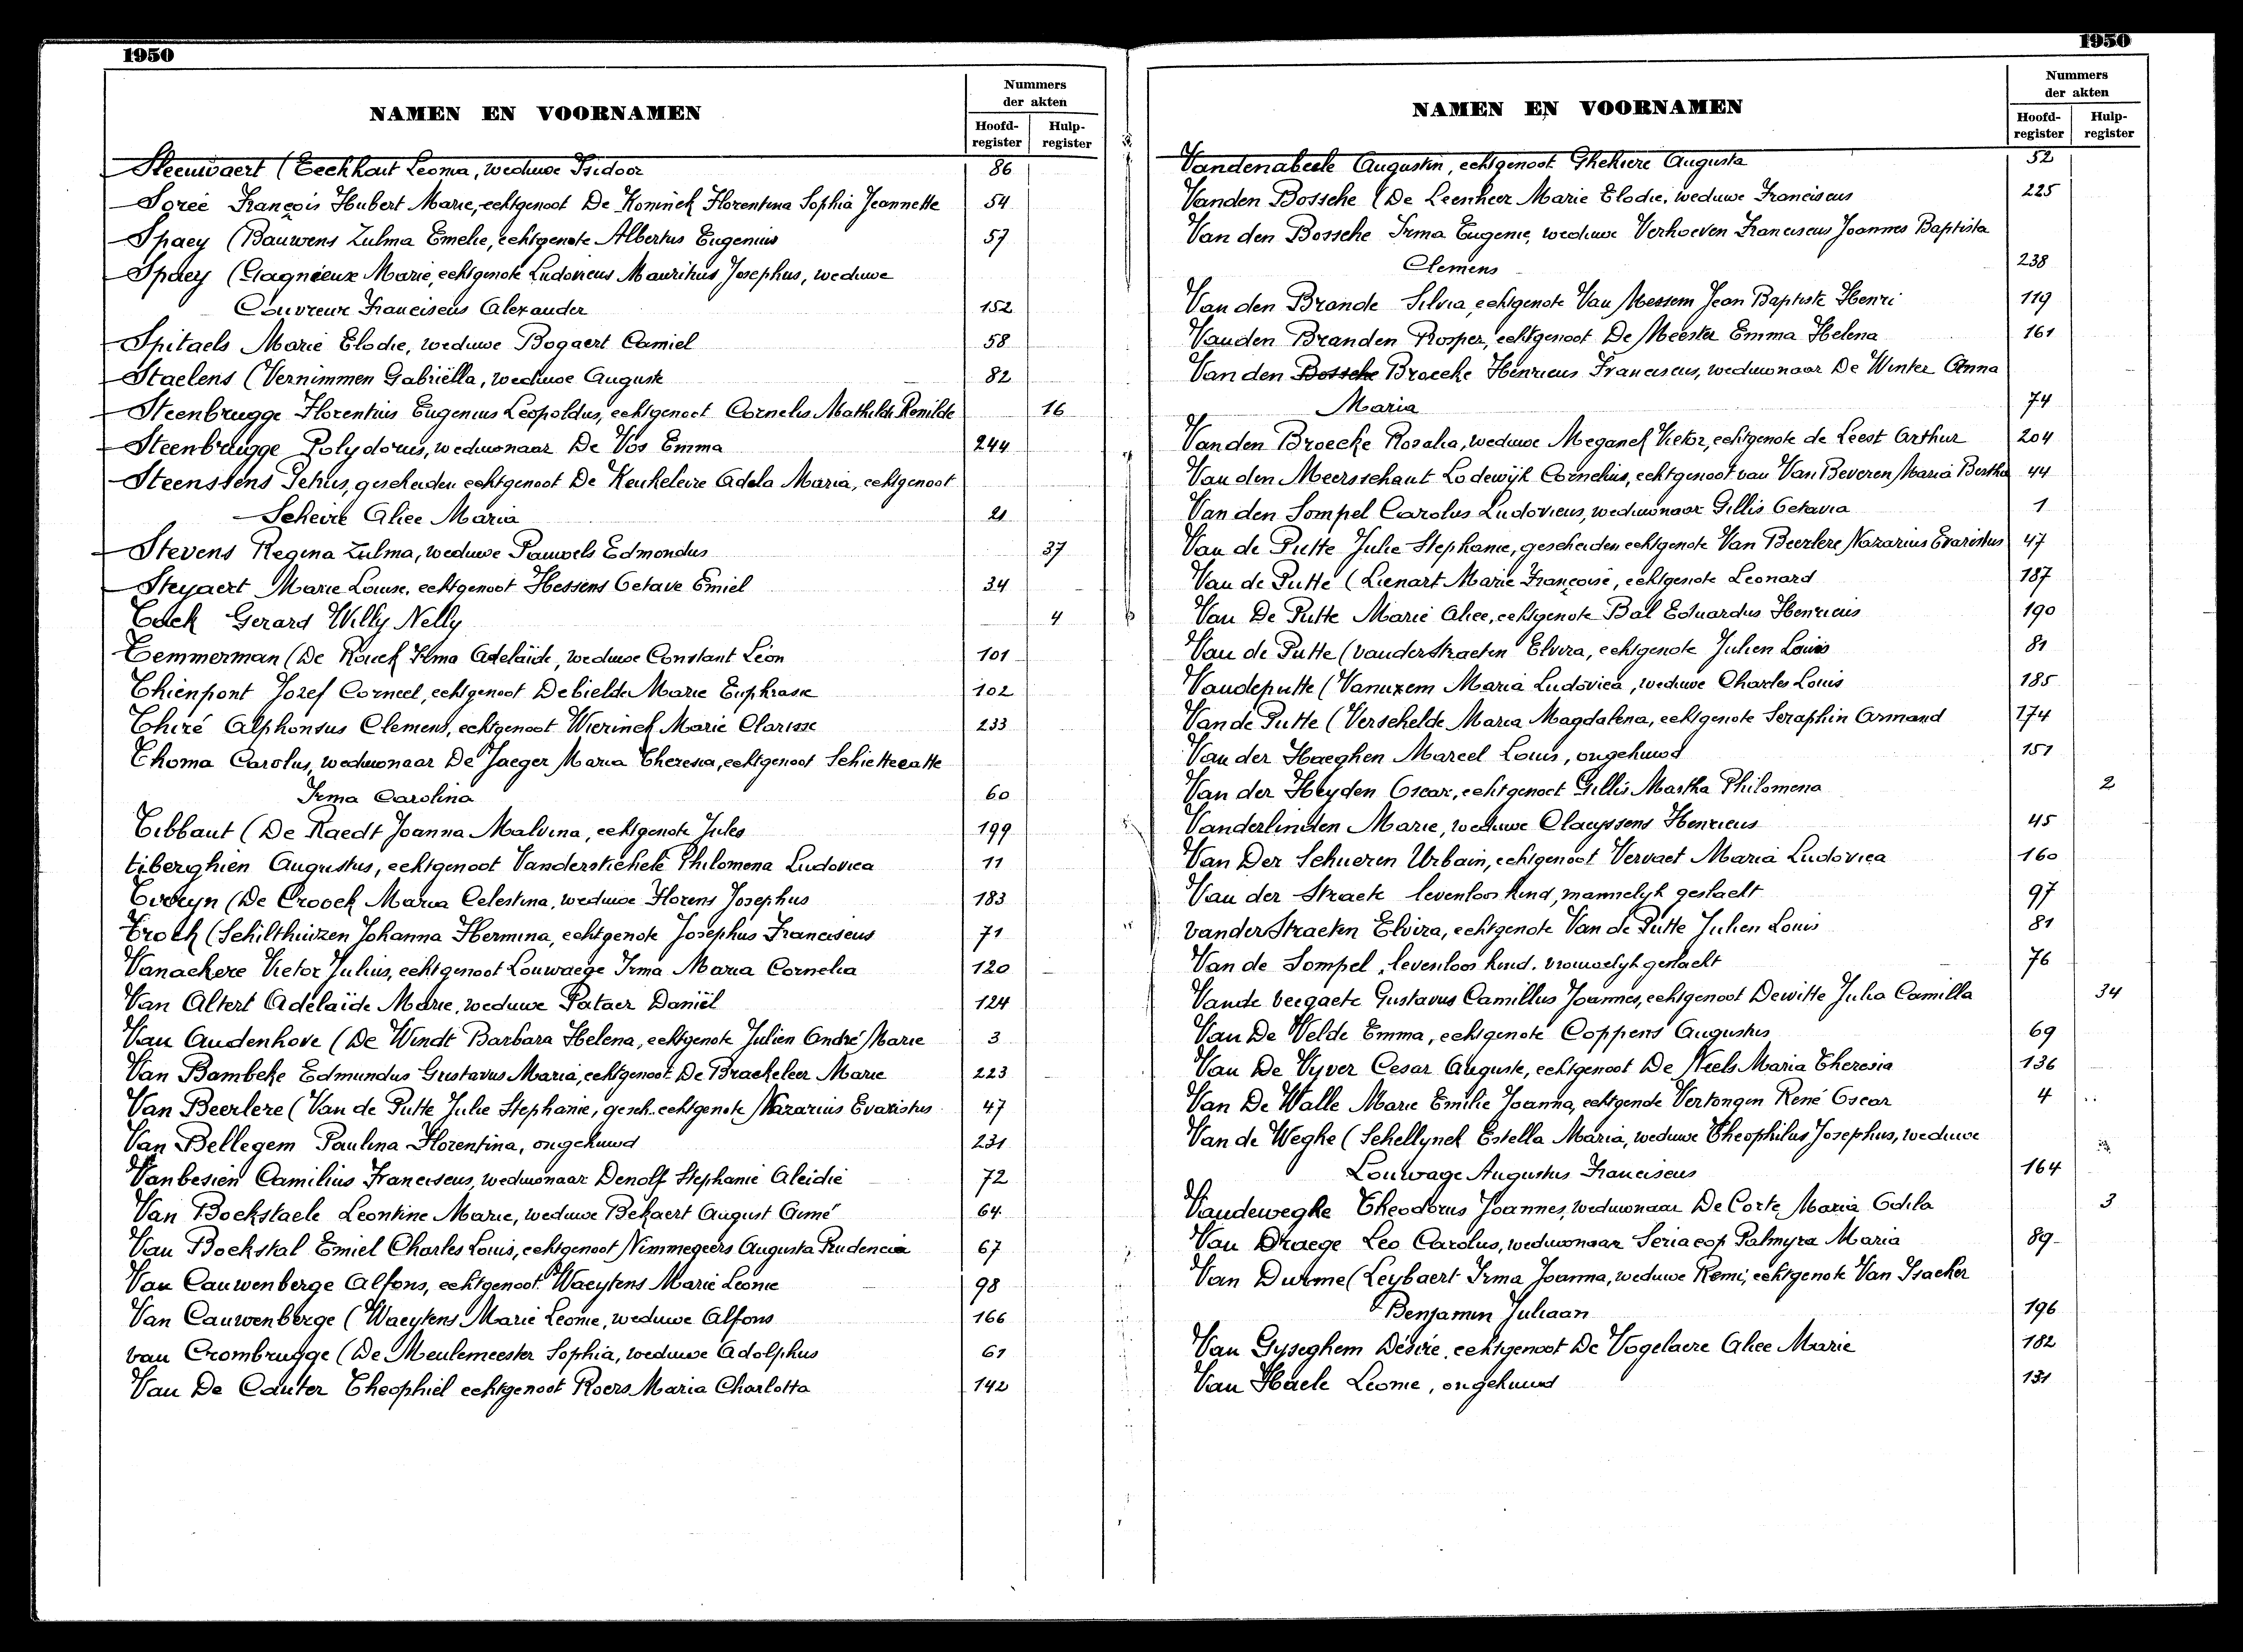 1950
NAMEN EN VOORNAMEN
Nummers
der akten
Hoofd-
register
Hulp-
register
Sleeuwaert (Eeckhaut Leonia, weduwe Isidoor 86
Soreé François Hubert Marie, echtgenoot De Koninck Florentina Sophia Jeannette 54
Spaey (Bauwens Zulma Emelie, echtgenote Albertus Eugenius 57
Spaey (Gagnieux Marie, echtgenote Ludovicus Mauritius Josephus, weduwe
Couvreur Franciscus Alexander 152
Spitaels Marie Elodie, weduwe Bogaert Camiel 58
Staelens (Vernimmen Gabriëlla, weduwe Auguste 82
Steenbrugge Florentius Eugenius Leopoldus, echtgenoot Cornelis Mathilde Romilde 16
Steenbrugge Polydorus, weduwnaar De Vos Emma 244
Steenssens Petrus, gescheiden echtgenoot De Keukeleire Adela Maria, echtgenoot
Scheire Alice Maria 21
Stevens Regina Zulma, weduwe Pauwels Edmondus 37
Steyaert Marie Louise, echtgenoot Hessens Octave Emiel 34
Tack Gerard Willy Nelly 4
Temmerman (De Rouck Irma Adelaïde, weduwe Constant Léon 101
Thienpont Jozef Corneel, echtgenoot Debielde Marie Euphrasie 102
Thiré Alphonsus Clemens, echtgenoot Wierinck Marie Clarisse 233
Thoma Carolus, weduwnaar De Jaeger Maria Theresia, echtgenoot Schiettecatte
Irma Carolina 60
Tibbaut (De Raedt Joanna Malvina, echtgenote Jules 199
tiberghien Augustus, echtgenoot Vanderstichele Philomena Ludovica 11
(De Croock Maria Celestina, weduwe Florens Josephus 183
Troch (Schilthuizen Johanna Hermina, echtgenote Josephus Franciscus 71
Vanackere Victor Julius, echtgenoot Louwaege Irma Maria Cornelia 120
Van Altert Adelaïde Marie, weduwe Pataer Daniël 124
Van Audenhove (De Windt Barbara Helena, echtgenote Julien André Marie 3
Van Bambeke Edmundus Gustavus Maria, echtgenoot De Brackeleer Marie 223
Van Beerlere (Van de Putte Julie Stephanie, gesch. echtgenote Nazarius Evaristus 47
Van Bellegem Paulina Florentina, ongehuwd 231
Vanbesien Camilius Franciscus, weduwnaar Denolf Stephanie Aleidie 72
Van Bockstaele Leontine Marie, weduwe Bekaert August Aimé 64
Van Bockstal Emiel Charles Louis, echtgenoot Nimmegeers Augusta Prudencia 67
Van Cauwenberge Alfons, echtgenoot Waeytens Marie Leonie 98
Van Cauwenberge (Waeytens Marie Leonie, weduwe Alfons 166
van Crombrugge (De Meulemeester Sophia, weduwe Adolphus 61
Van De Cauter Theophiel echtgenoot Roers Maria Charlotta 142
1950
NAMEN EN VOORNAMEN
Nummers
der akten
Hoofd-
register
Hulp-
register
Vandenabeele Augusten, echtgenoot Ghekiere Augusta 52
Vanden Bossche (De Leenheer Marie Elodie, weduwe Franciscus 225
Van den Bossche Irma Eugenie, weduwe Verhoeven Franciscus Joannes Baptista
Clemens 238
Van den Brande Silvia, echtgenote Van Messem Jean Baptiste Henri 119
Vanden Branden Prosper, echtgenoot De Meester Emma Helena 161
Van den Bossche Broecke Henricus Franciscus, weduwnaar De Winter Anna
Maria 74
Van den Broecke Rosalia, weduwe Meganck Victor, echtgenote de Leest Arthur 204
Van den Meersschaut Lodewijk Cornelius, echtgenoot van Van Beveren Maria Bertha 44
Van den Sompel Carolus Ludovicus, weduwnaar Gillis Octavia 1
Van de Putte Julie Stephanie, gescheiden echtgenote Van Beerlere Nazarius Evaristus 47
Van de Putte (Lienart Marie Françoise, echtgenote Leonard 187
Van De Putte Marie Alice, echtgenote Bal Eduardus Henricus 190
Van de Putte (vanderstraeten Elvira, echtgenote Julien Louis 81
Vandeputte (Vanuxem Maria Ludovica, weduwe Charles Louis 185
Van de Putte (Verschelde Maria Magdalena, echtgenote Seraphin Armand 174
Van der Haeghen Marcel Louis, ongehuwd 151
Van der Heyden Oscar, echtgenoot Gillis Martha Philomena 2
Vanderlinden Marie, weduwe Claeyssens Henricus 45
Van Der Schueren Urbain, echtgenoot Vervaet Maria Ludovica 160
Van der Straete levenloos kind, mannelijk geslacht 97
vanderStraeten Elvira, echtgenote Van de Putte Julien Louis 81
Van de Sompel, levenloos kind. vrouwelijk geslacht 76
Vande veegaete Gustavus Camillus Joannes, echtgenoot Dewitte Julia Camilla 34
Van De Velde Emma, echtgenote Coppens Augustus 69
Van De Vyver Cesar Auguste, echtgenoot De Neels Maria Theresia 136
Van De Walle Marie Emilie Joanna, echtgenote Vertongen René Oscar 4
Van de Weghe (Schellynck Estella Maria, weduwe Theophilus Josephus, weduwe
Louwage Augustus Franciscus 164
Vandeweghe Theodorus Joannes, weduwnaar De Corte Maria Odila 3
Van Draege Leo Carolus, weduwnaar Seriacop Palmyra Maria 89
Van Durme (Leybaert Irma Joanna, weduwe Remi, echtgenote Van Isacker
Benjamin Juliaan 196
Van Gyseghem Désiré, echtgenoot De Vogelaere Alice Marie 182
Van Haele Leonie, ongehuwd 131